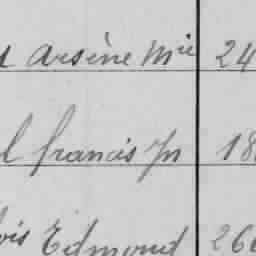 Arsène Mie 24
l francis jn 18
ois Edmond 26